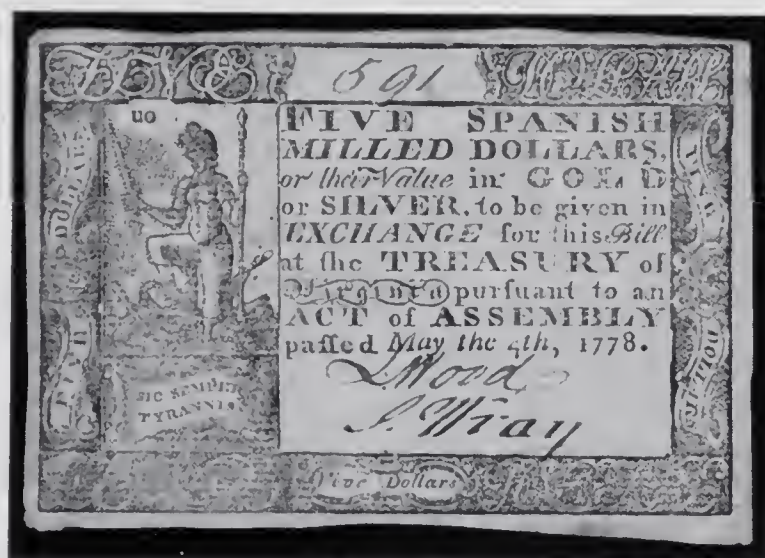 FIVE
591
uo
FIVE SPANISH
MILLED DOLLARS,
or their Value in GOLD
or SILVER, to be given in
EXCHANGE for this Bill
at the TREASURY of
Virginia purſuant to an
ACT of ASSEMBLY
paſſed May the 4th, 1778.
J. Wray
SIC SEMPER
TYRANNIS
FIVE DOLLARS
FIVE DOLLARS
Five Dollars